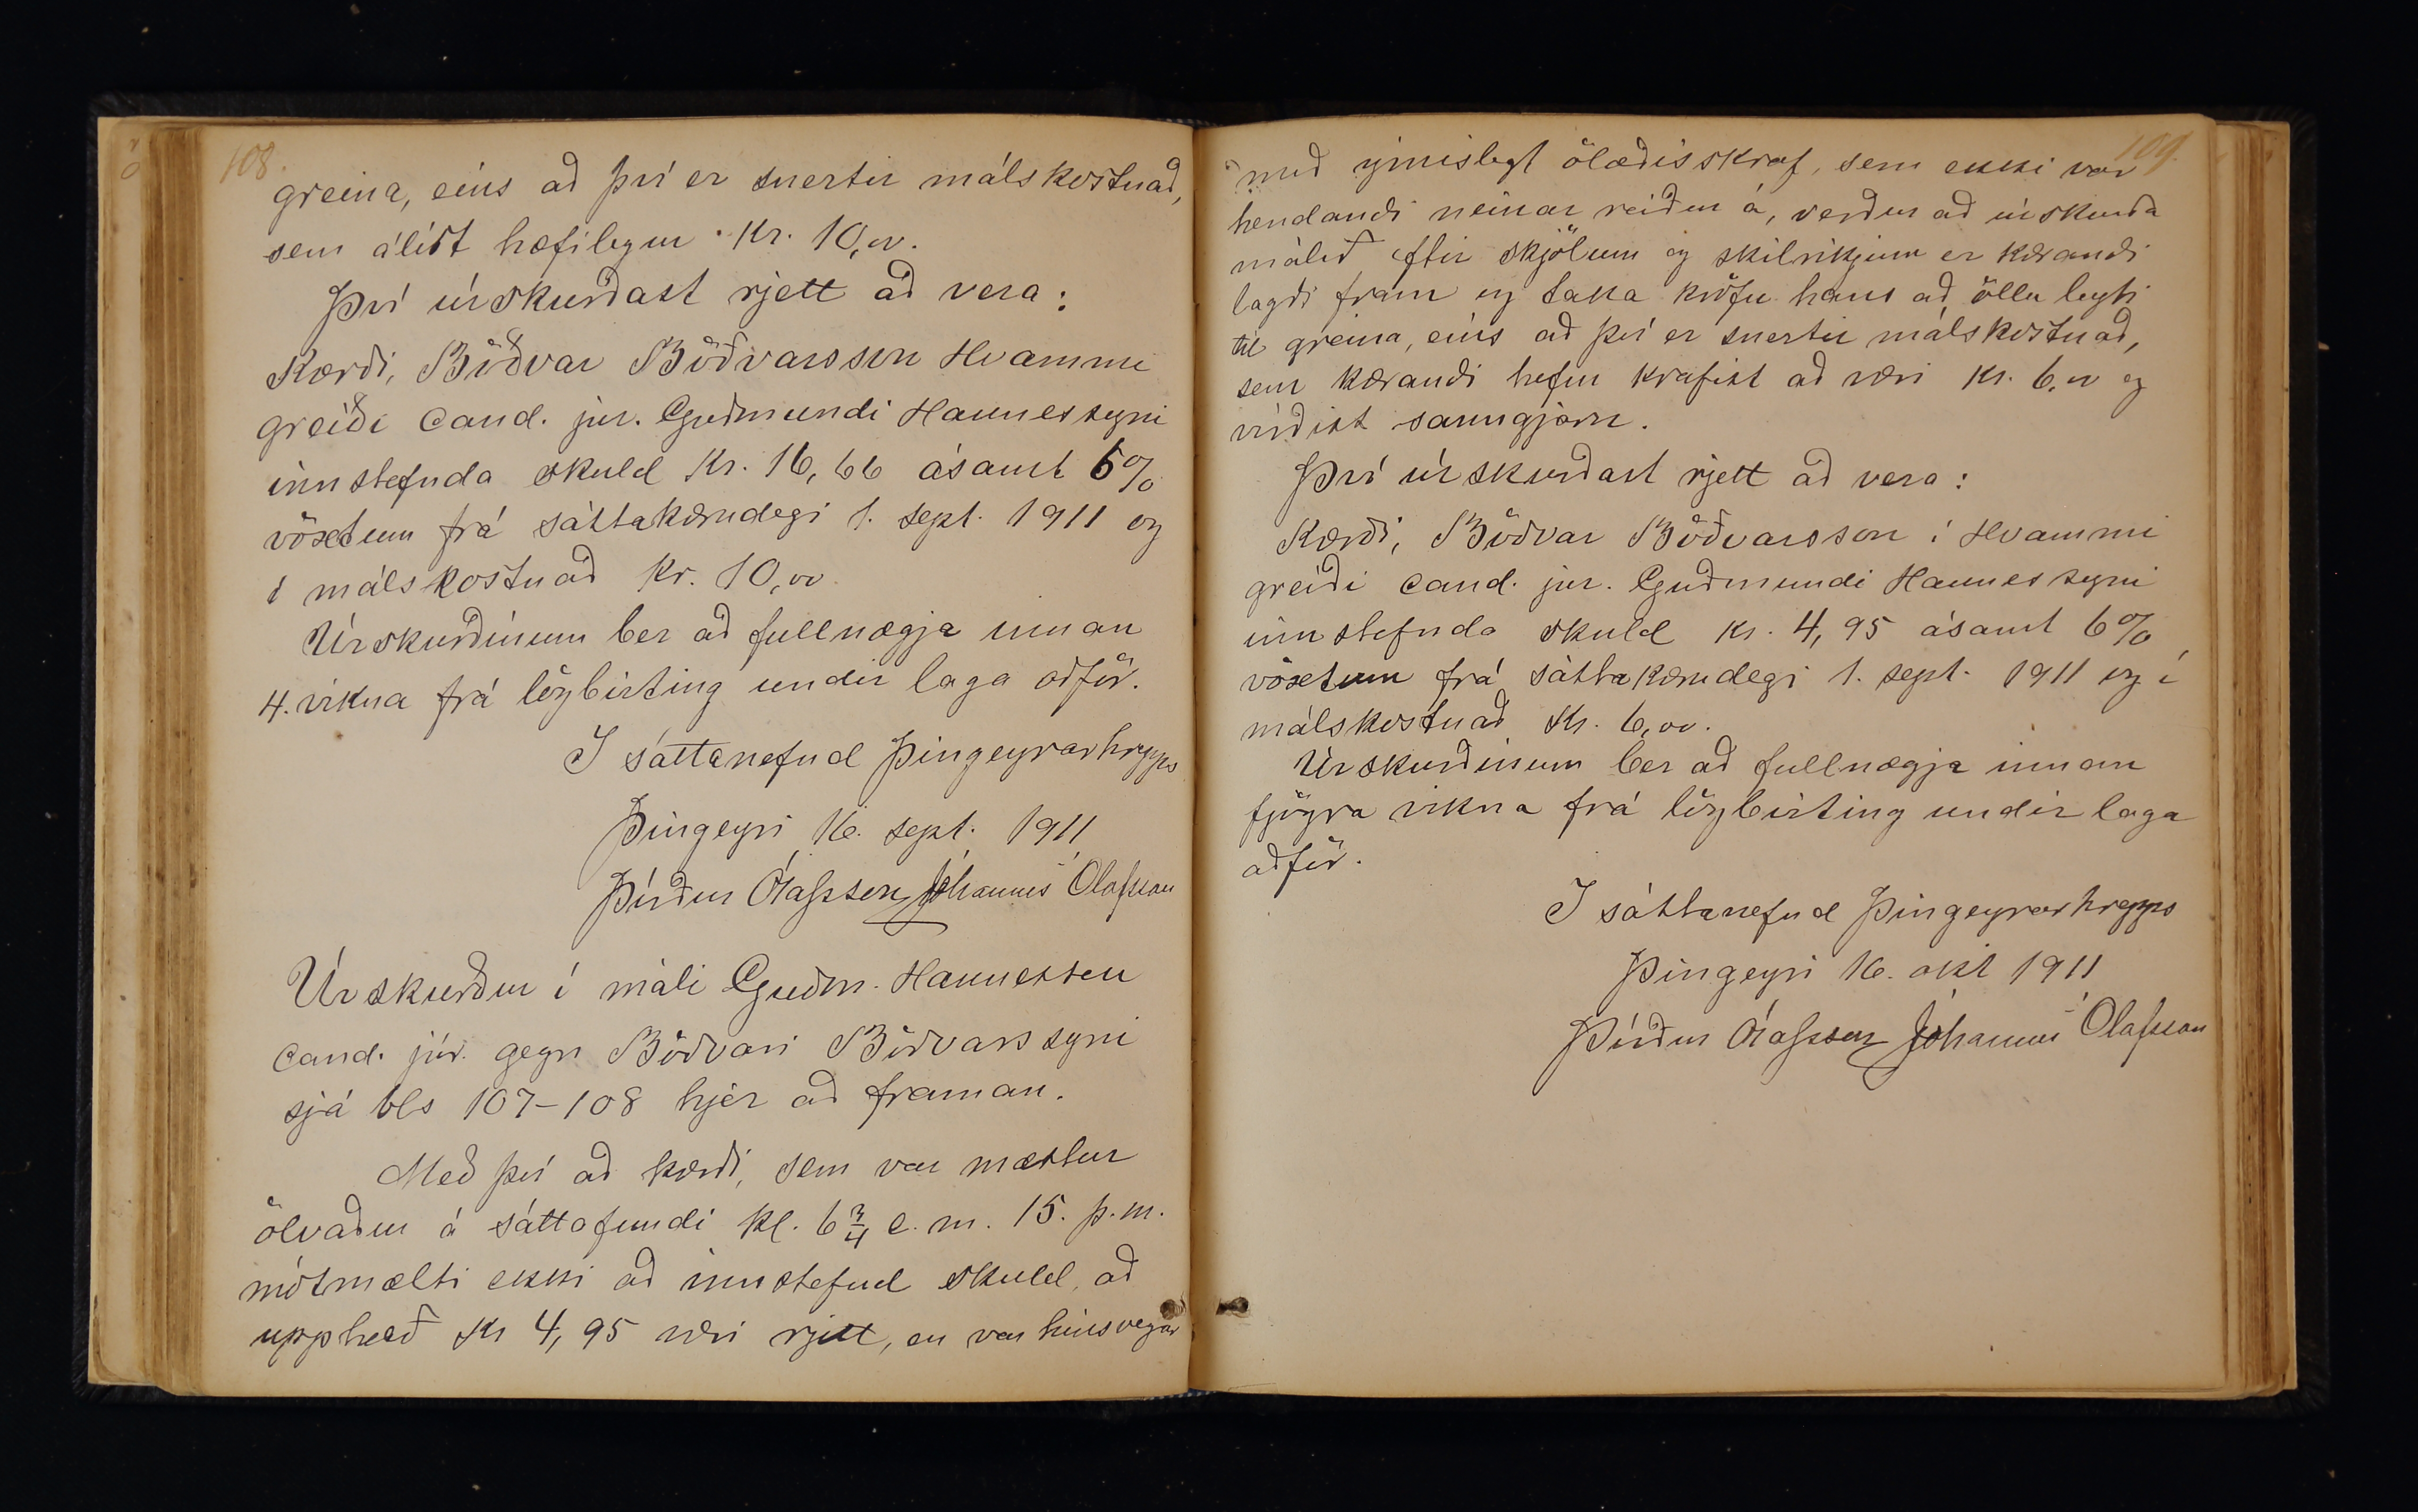 108.
greina, eins að því er snertir málskostnað,
sem álíst hæfilegur Kr. 10,00.
Því úrskurðast rjett að vera:
Kærði, Böðvar Böðvarsson Hvammi
greiði cand. jur. Guðmundi Hannessyni
innstefnda skuld Kr. 16,66 ásamt 6%
vöxtum frá sáttakærudegi 1. sept. 1911 og
í málskostnað Kr. 10,00
Úrskurðinum ber að fullnægja innan
4. vikna frá lögbirting undir laga aðför.
Í sáttanefnd Þingeyrarhrepps
Þingeyri 16. sept. 1911
Þórður Ólafsson Jóhannes Ólafsson
Úrskurður í máli Guðm. Hannesson
cand. júr. gegn Böðvari Böðvarssyni
sjá bls 107-108 hjer að framan.
Með því að kærði, sem var mættur
ölvaður á sáttafundi kl. 6 3/4 e.m. 15. þ.m.
mótmælti ekki að innstefnd skuld, að
upphæð Kr 4,95 væri rjett, en var hinsvegar
109.
með ýmislegt ölæðisskraf, sem ekki var
hendandi neinar reiður á, verður að úrskurða
málið eftir skjölum og skilríkjum er kærandi
lagði fram og taka kröfu hans að öllu leyti
til greina, eins að því er snertir málskostnað,
sem kærandi hefur krafist að væri Kr. 6,00 og
virðist sanngjörn.
Því úrskurðast rjett að vera:
Kærði, Böðvar Böðvarsson í Hvammi
greiði cand. jur. Guðmundi Hannessyni
innstefnda skuld Kr. 4,95 ásamt 6%
vöxtum frá sáttakærudegi 1. sept. 1911 og í
málskostnað Kr. 6,00.
Úrskurðinum ber að fullnægja innan
fjögra vikna frá lögbirting undir laga
aðför.
Í sáttanefnd Þingeyrarhrepps
Þingeyri 16. okt 1911
Þórður Ólafsson Jóhannes Ólafsson